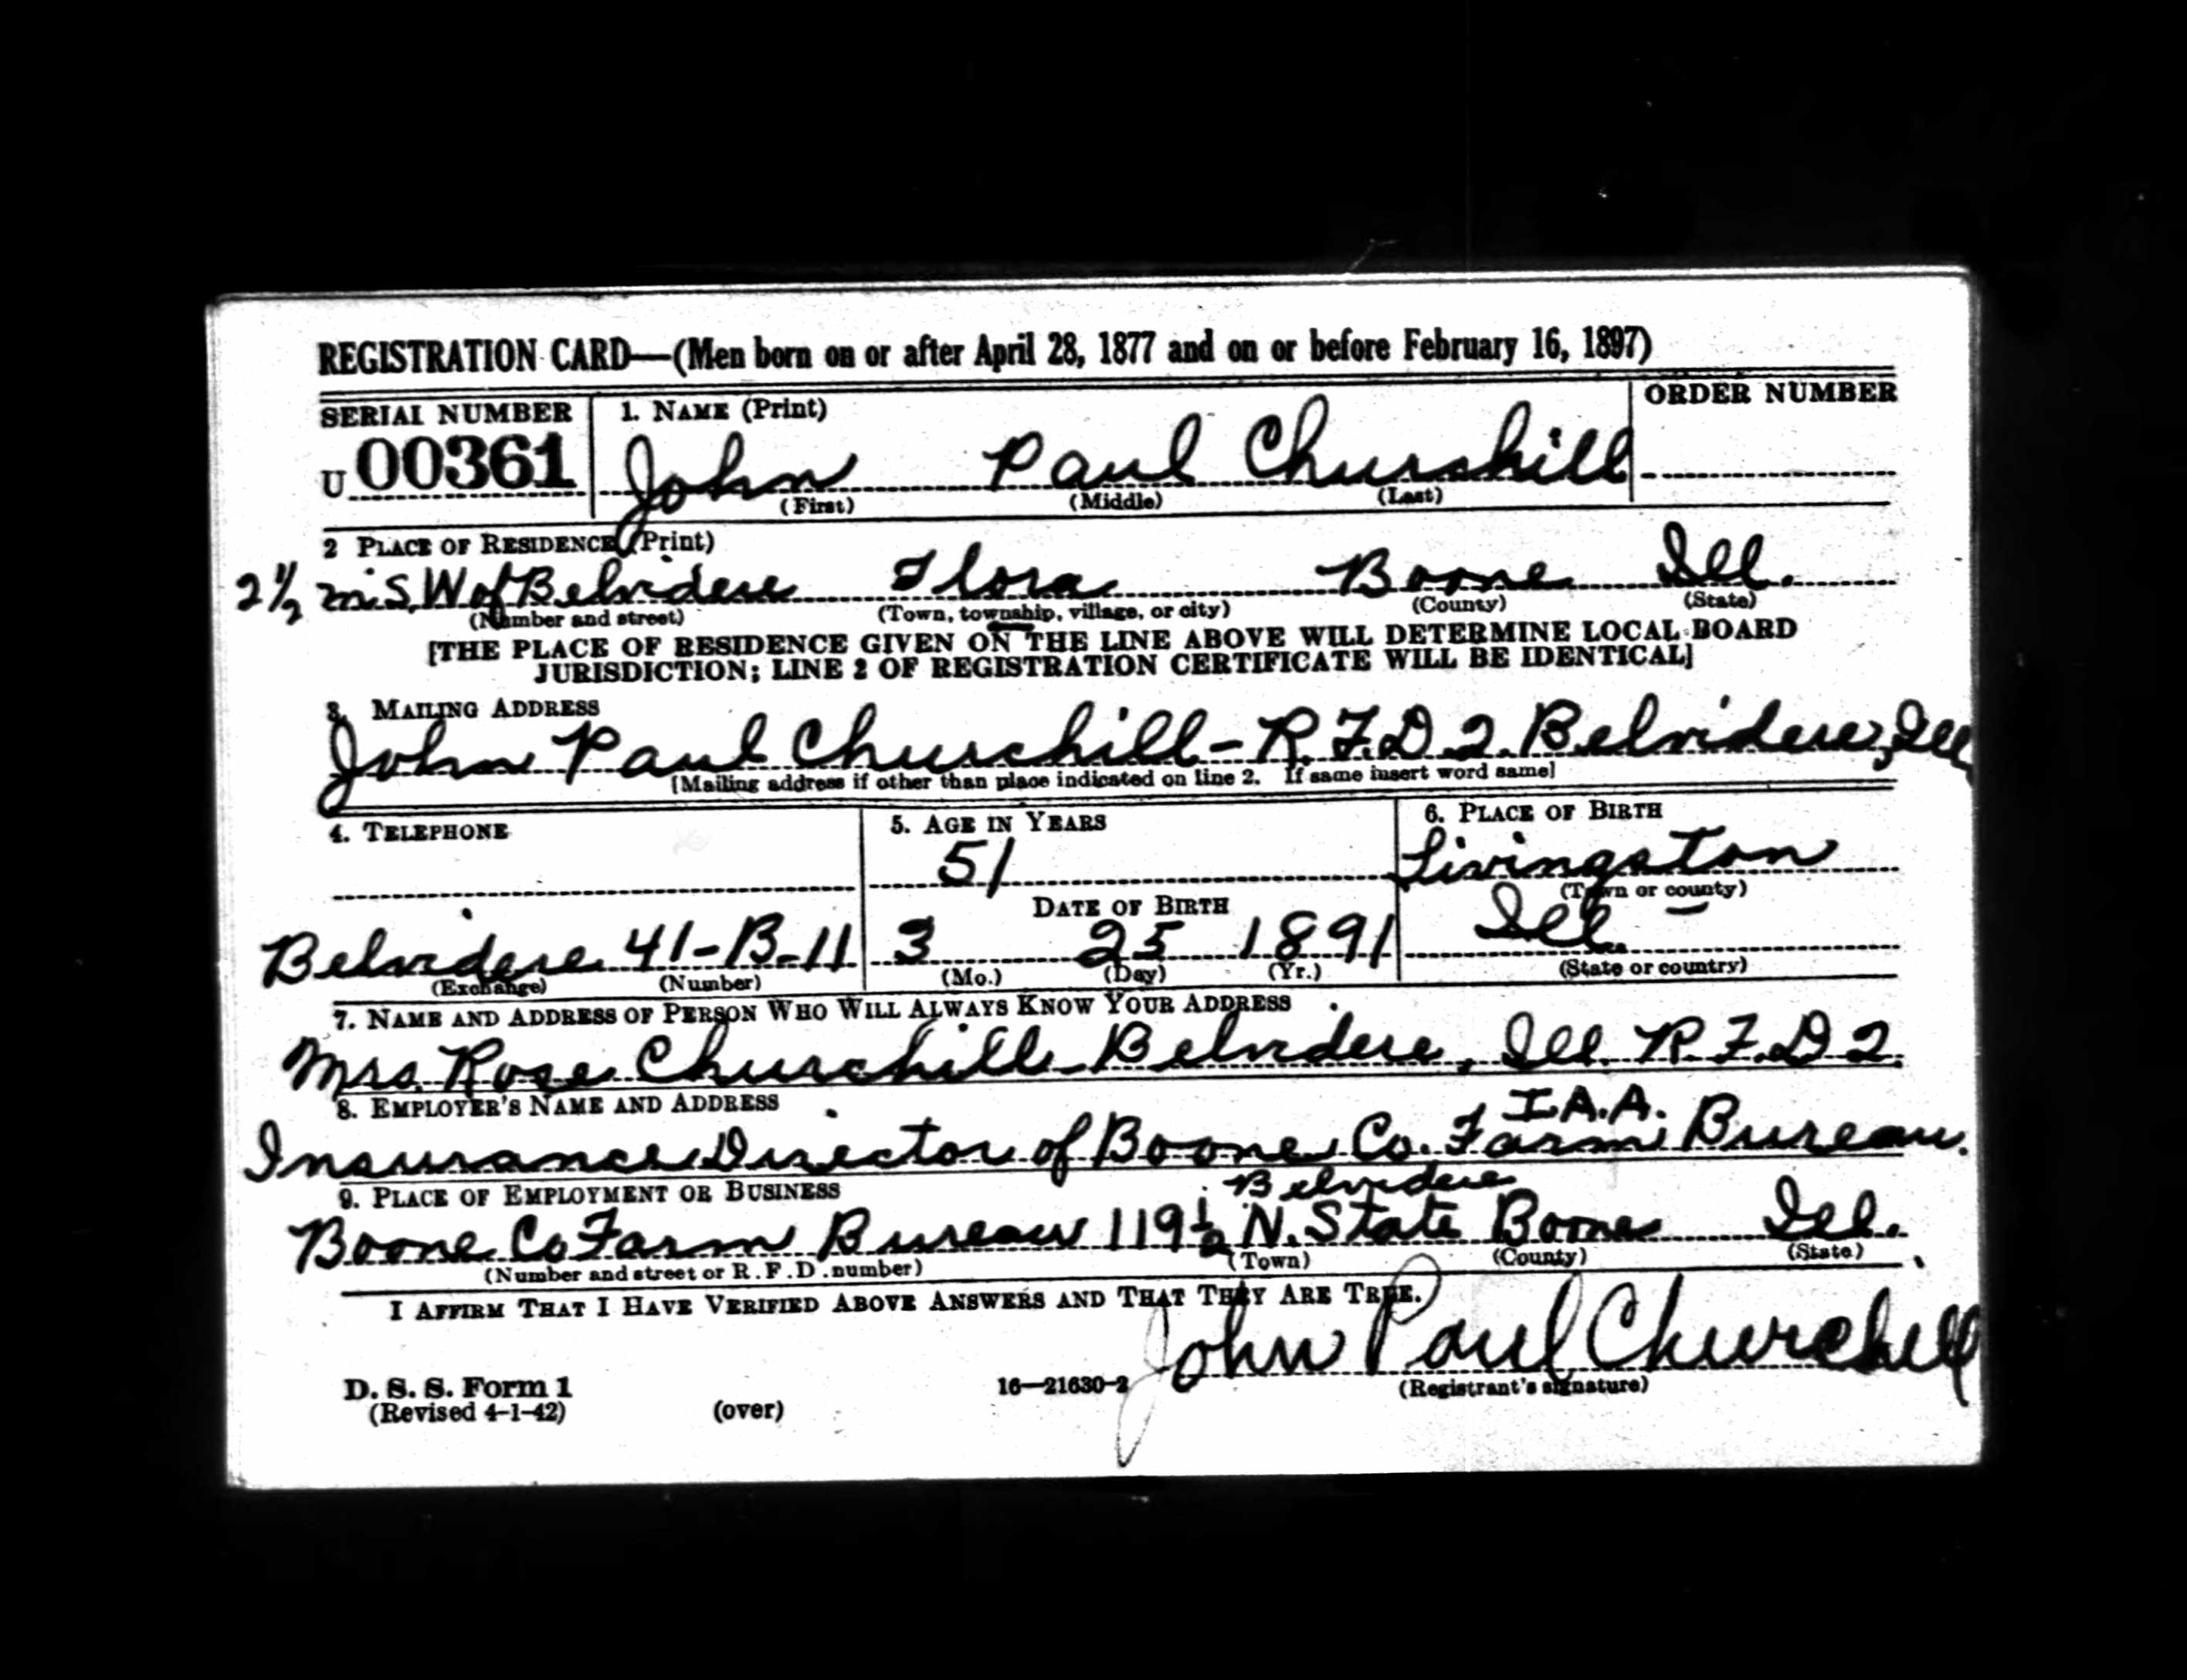 REGISTRATION CARD—(Men born on or after April 28, 1877 and on or before February 16, 1897)
SERIAL NUMBER 1. NAME (Print) ORDER NUMBER
U 00361 John Paul Churchill
(First) (Middle) (Last)
2 PLACE OF RESIDENCE (Print)
2 1/2 mi S.W of Belvidere Flora Boone Ill.
(Number and street) (Town, township, village, or city) (County) (State)
[THE PLACE OF RESIDENCE GIVEN ON THE LINE ABOVE WILL DETERMINE LOCAL BOARD
JURISDICTION; LINE 2 OF REGISTRATION CERTIFICATE WILL BE IDENTICAL]
3. MAILING ADDRESS
John Paul Churchill - R.F.D 2. Belvidere, Ill
[Mailing address if other than place indicated on line 2. If same insert word same]
4. TELEPHONE 5. AGE IN YEARS 6. PLACE OF BIRTH
51 Livingston
(Town or county)
DATE OF BIRTH Ill.
Belvidere 41-B-11 3 25 1891
(Exchange) (Number) (Mo.) (Day) (Yr.) (State or country)
7. NAME AND ADDRESS OF PERSON WHO WILL ALWAYS KNOW YOUR ADDRESS
Mrs. Rose Churchill - Belvidere, Ill. R.F.D 2.
8. EMPLOYER'S NAME AND ADDRESS I.A.A.
Insurance Director of Boone Co. Farm Bureau.
9. PLACE OF EMPLOYMENT OR BUSINESS Belvidere
Boone Co Farm Bureau 119 1/2 N. State Boone Ill.
(Number and street or R.F.D. number) (Town) (County) (State)
I AFFIRM THAT I HAVE VERIFIED ABOVE ANSWERS AND THAT THEY ARE TRUE.
John Paul Churchill
D. S. S. Form 1 16—21630-2 (Registrant's signature)
(Revised 4-1-42) (over)